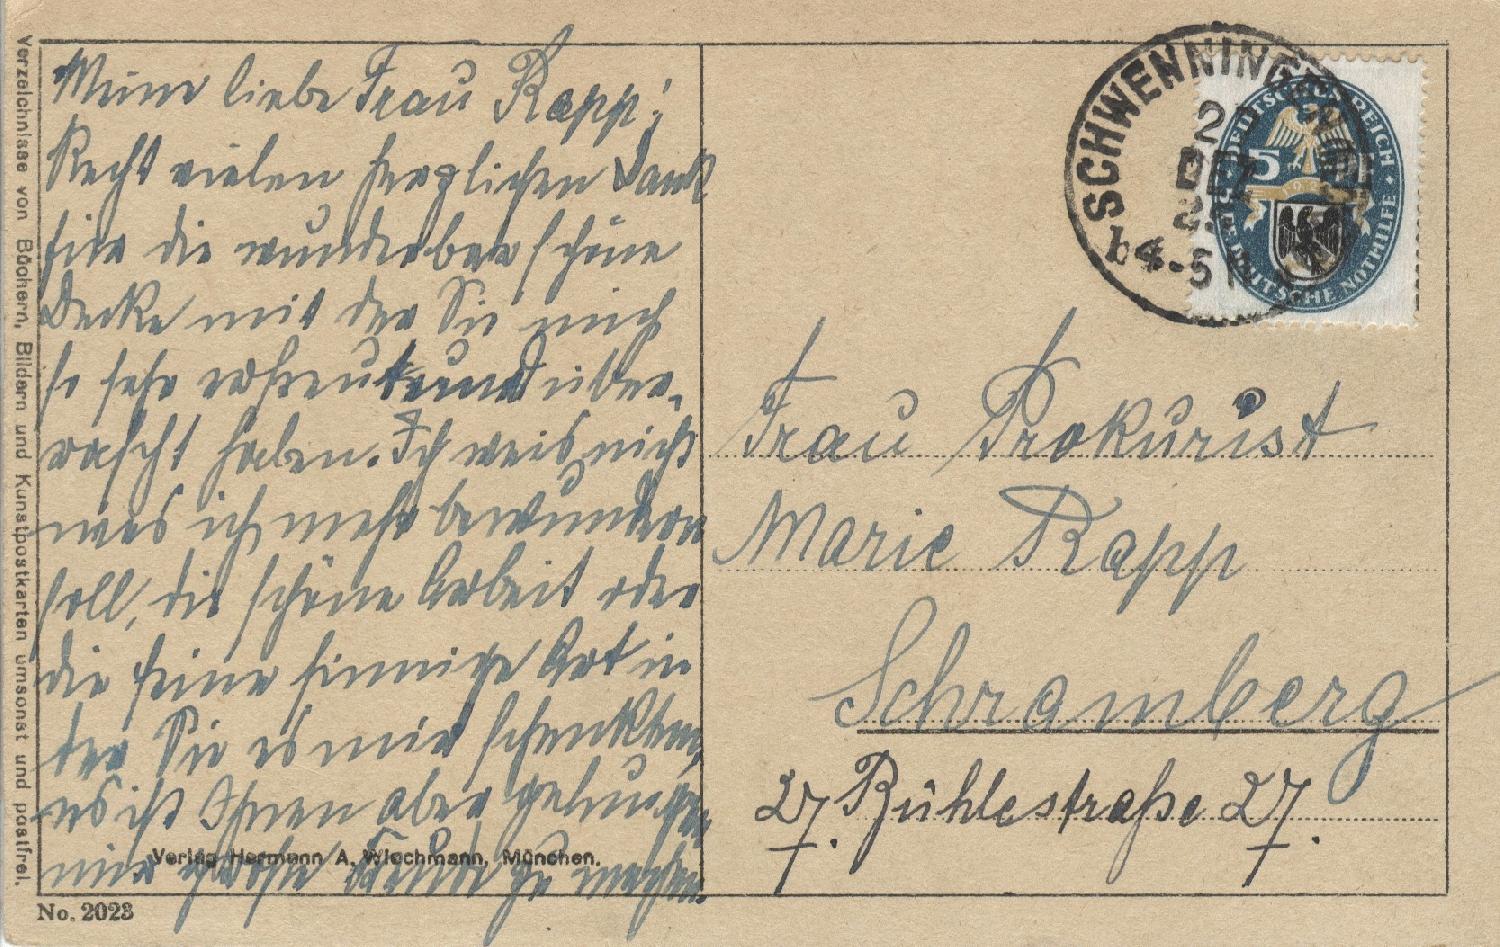 Meine liebe Frau Rapp!
Recht vielen herzlichen Dank
für die wunderbar schöne
Decke mit der Sie mich
so sehr erfreut und über-
rascht haben. Ich weis nicht
was ich mehr bewundern
soll, die schöne Arbeit oder
die feine sinnige Art in
der Sie es mir schenkten,
es ist Ihnen aber gelungen
mir große Freude zu machen
Verlag Hermann A. Wiechmann, München.
No. 2023
Verzeichnisse von Büchern, Bildern und Kunstpostkarten umsonst und postfrei.
SCHWENNINGEN
DEZ
b4-5
DEUTSCHES REICH
5
DEUTSCHE NOTHILFE
Frau Prokurist
Marie Rapp
Schramberg
27. Bühlestraße 27.